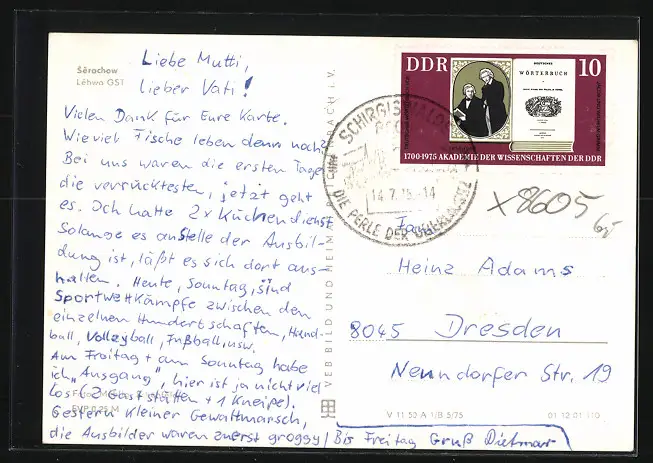 Šěrachow
Lěhwo GST
Liebe Mutti,
lieber Vati!
Vielen Dank für Eure Karte.
Wieviel Fische leben denn noch?
Bei uns waren die ersten Tage
die verrücktesten, jetzt geht
es. Ich hatte 2x Küchendienst
Solange es anstelle der Ausbil-
dung ist, läßt es sich dort aus-
halten. Heute, Sonntag, sind
Sportwettkämpfe zwischen den
einzelnen Hundertschaften, Hand-
ball, Volleyball, Fußball, usw.
Am Freitag + am Sonntag habe
ich „Ausgang", hier ist ja nicht viel
los (2 Gaststätten + 1 Kneipe).
EVP 0,25 M
Gestern kleiner Gewaltmarsch,
die Ausbilder waren zuerst groggy!
Bis Freitag Gruß Dietmar
VEB BILD UND HEIMAT REICHENBACH i. V.
DDR
10
DEUTSCHES
WÖRTERBUCH
1700-1975 AKADEMIE DER WISSENSCHAFTEN DER DDR
SCHIRGISWALDE
14.7.75-14
DIE PERLE DER OBERLAUSITZ
x8605
Fam.
Heinz Adams
8045 Dresden
Neundorfer Str. 19
V 11 50 A 1/B 5/75
01 12 01 110